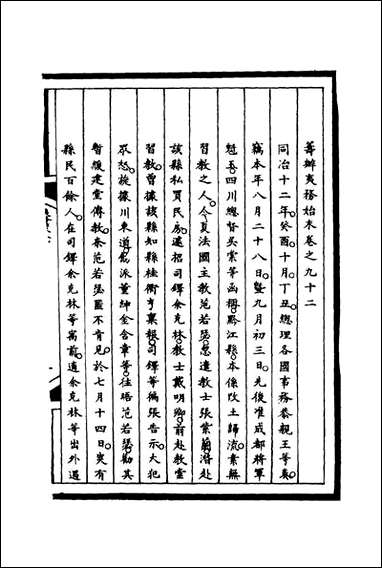 籌辦夷務始末卷之九十二
同治十二年癸酉十月丁丑總理各國事務恭親王等奏
竊本年八月二十八日暨九月初三日先後准成都將軍
魁玉四川總督吳棠等函稱黔江縣本係改土歸流素無
習教之人今夏法國主教范若瑟忽遣教士張紫蘭潛赴
該縣私買民房遽招司鐸余克林教士戴明卿前赴教堂
習教曾據該縣知縣桂衢亨稟報司鐸等徧張告示大犯
眾怒旋據川東道飭派董紳金含章等往晤范若瑟勸其
暫緩建堂傳教奈范若瑟置不肯見於七月十四日突有
縣民百餘人在司鐸余克林等寓前適余克林等出外遇